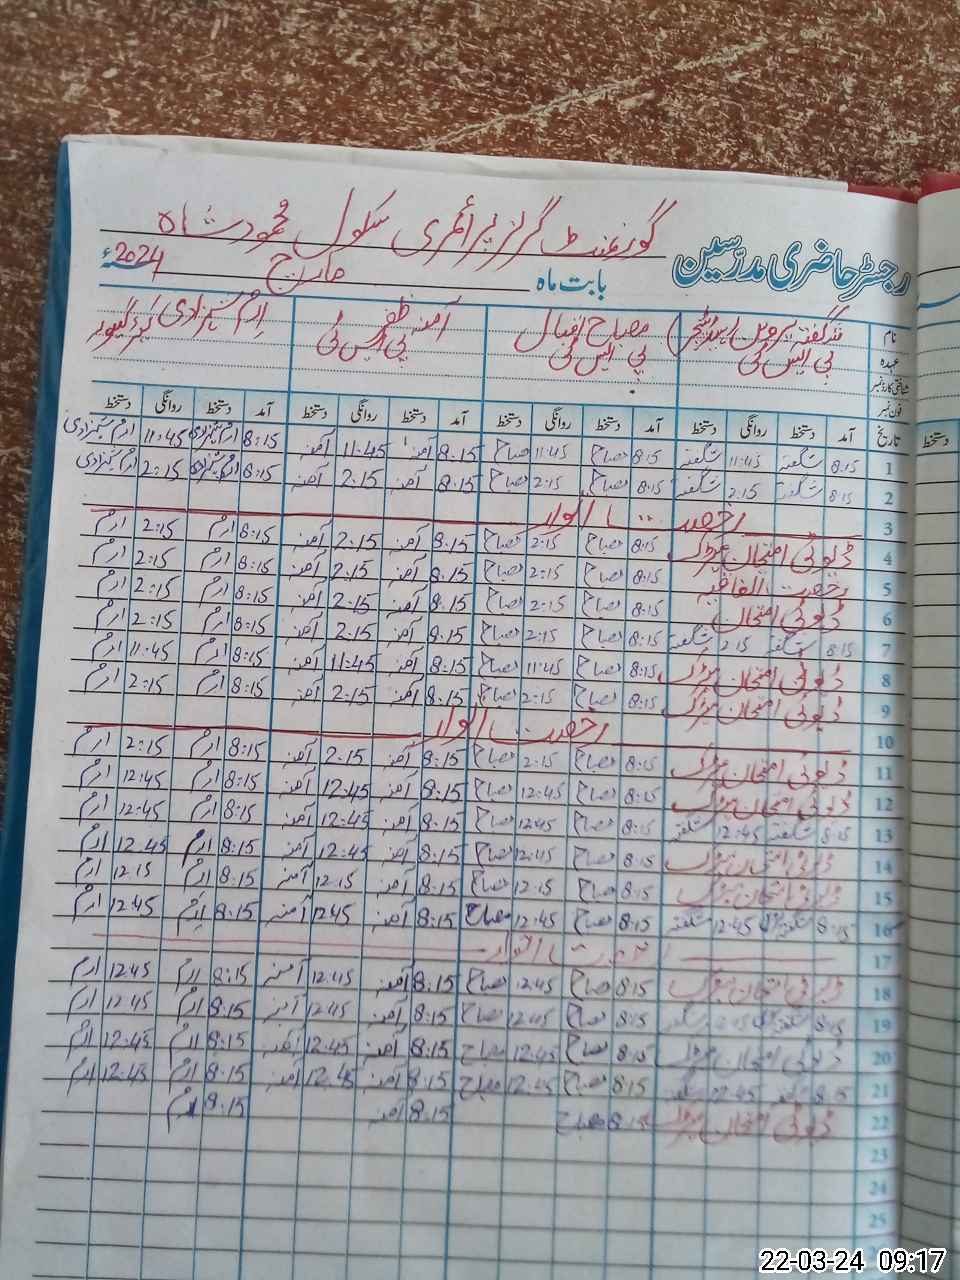 گورنمنٹ گرلز پرائمری سکول محمود شاہ
رجسٹر حاضری مدرسین بابت ماہ مارچ 2024ء
نام شگفتہ پروین (ہیڈ ٹیچر) مصباح اقبال آمنہ ظفر ارم شہزادی کیئر گیور
عہدہ پی ایس ٹی پی ایس ٹی پی ایس ٹی
شناختی کارڈ نمبر
فون نمبر
تاریخ آمد دستخط روانگی دستخط آمد دستخط روانگی دستخط آمد دستخط روانگی دستخط آمد دستخط روانگی دستخط دستخط
1 8:15 شگفتہ 11:45 شگفتہ 8:15 مصباح 11:45 مصباح 8:15 آمنہ 11:45 آمنہ 8:15 ارم شہزادی 11:45 ارم شہزادی
2 8:15 شگفتہ 2:15 شگفتہ 8:15 مصباح 2:15 مصباح 8:15 آمنہ 2:15 آمنہ 8:15 ارم شہزادی 2:15 ارم شہزادی
3 رخصت اتوار
4 ڈیوٹی امتحان میٹرک 8:15 مصباح 2:15 مصباح 8:15 آمنہ 2:15 آمنہ 8:15 ارم 2:15 ارم
5 رخصت اتفاقیہ 8:15 مصباح 2:15 مصباح 8:15 آمنہ 2:15 آمنہ 8:15 ارم 2:15 ارم
6 ڈیوٹی امتحان 8:15 مصباح 2:15 مصباح 8:15 آمنہ 2:15 آمنہ 8:15 ارم 2:15 ارم
7 8:15 شگفتہ 2:15 شگفتہ 8:15 مصباح 2:15 مصباح 8:15 آمنہ 2:15 آمنہ 8:15 ارم 2:15 ارم
8 ڈیوٹی امتحان میٹرک 8:15 مصباح 11:45 مصباح 8:15 آمنہ 11:45 آمنہ 8:15 ارم 11:45 ارم
9 ڈیوٹی امتحان میٹرک 8:15 مصباح 2:15 مصباح 8:15 آمنہ 2:15 آمنہ 8:15 ارم 2:15 ارم
10 رخصت اتوار
11 ڈیوٹی امتحان میٹرک 8:15 مصباح 2:15 مصباح 8:15 آمنہ 2:15 آمنہ 8:15 ارم 2:15 ارم
12 ڈیوٹی امتحان میٹرک 8:15 مصباح 12:45 مصباح 8:15 آمنہ 12:45 آمنہ 8:15 ارم 12:45 ارم
13 8:15 شگفتہ 12:45 شگفتہ 8:15 مصباح 12:45 مصباح 8:15 آمنہ 12:45 آمنہ 8:15 ارم 12:45 ارم
14 ڈیوٹی امتحان میٹرک 8:15 مصباح 12:45 مصباح 8:15 آمنہ 12:45 آمنہ 8:15 ارم 12:45 ارم
15 ڈیوٹی امتحان میٹرک 8:15 مصباح 12:15 مصباح 8:15 آمنہ 12:15 آمنہ 8:15 ارم 12:15 ارم
16 8:15 شگفتہ 12:45 شگفتہ 8:15 مصباح 12:45 مصباح 8:15 آمنہ 1245 آمنہ 8:15 ارم 12:45 ارم
17 رخصت اتوار
18 ڈیوٹی امتحان میٹرک 8:15 مصباح 12:45 مصباح 8:15 آمنہ 12:45 آمنہ 8:15 ارم 12:45 ارم
19 8:15 شگفتہ شگفتہ 8:15 مصباح 12:45 مصباح 8:15 آمنہ 12:45 آمنہ 8:15 ارم 12:45 ارم
20 ڈیوٹی امتحان میٹرک 8:15 مصباح 12:45 مصباح 8:15 آمنہ 12:45 آمنہ 8:15 ارم 12:45 ارم
21 8:15 شگفتہ 12:45 شگفتہ 8:15 مصباح 12:45 مصباح 8:15 آمنہ 12:45 آمنہ 8:15 ارم 12:45 ارم
22 ڈیوٹی امتحان میٹرک 8:15 مصباح 8:15 آمنہ 8:15 ارم
23
24
25
22-03-24 09:17